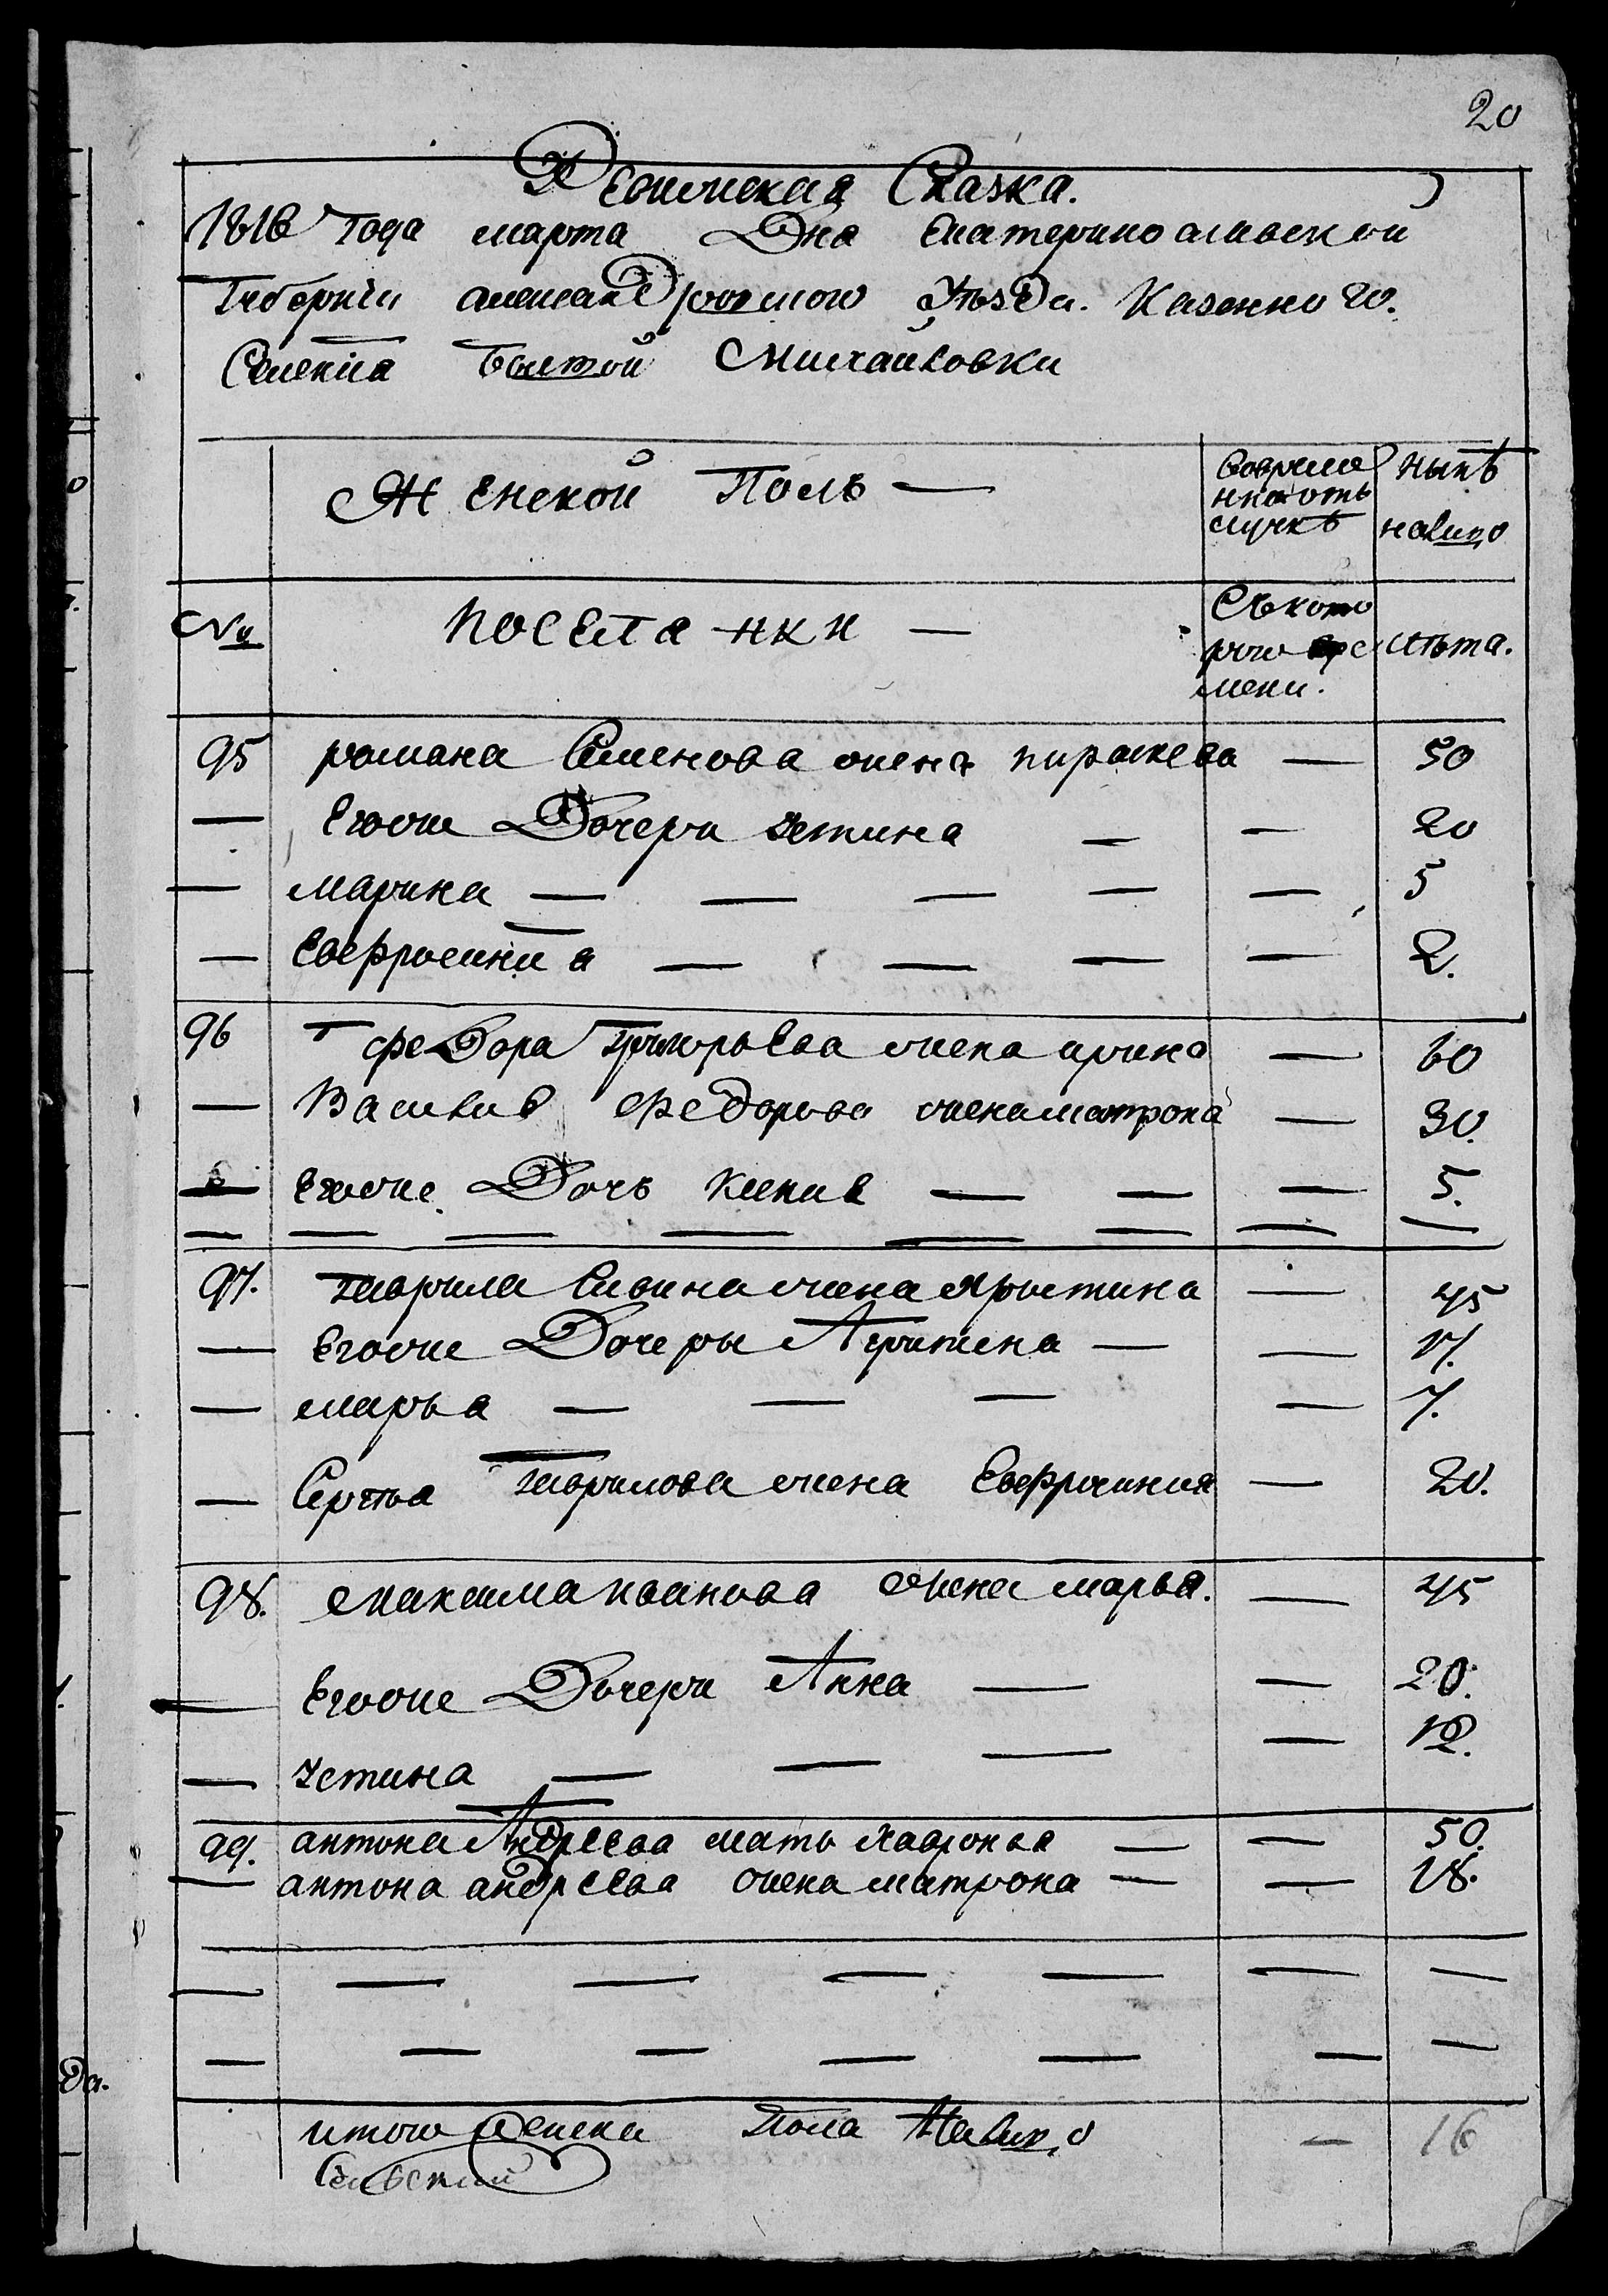 20
Ревижская Сказка.
1816 года марта Дня Екатеринославской
Губернiи александровского Уѣзда. Казенного.
Селенiя Белой Михайловки
Женской Полъ —
Вовреме
нной отъ
лучкѣ
Нынѣ
налицо
№
поселянки —
Съкото
рого вре
мени.
лѣта.
95 романа Семенова жена параскева — 50
— Егоже Дочери устина — — 20
— марина — — — — — 5
— Евфросинiя — — — — 2.
96 федора Григорьева жена ирина — 60
— Василия Федорова жена матрона — 30.
— Егоже Дочь Ксения — — — 5.
— — — — — — — —
97. гаврила Савина жена Христина — 45
— Егоже Дочеры Агрипена — — 17.
— марья — — — — 7.
— Сергея гаврилова жена Евфросиния — 20.
98. максима иванова жена марья. — 45
— Егоже Дочери Анна — — 20.
— устина — — — — 12.
99. антона Андреева мать Хавронья — — 50.
— антона андреева жена матрона — — 18.
— — — — — — —
— — — — — — —
итого женска Пола Налицо — 16
Сельский